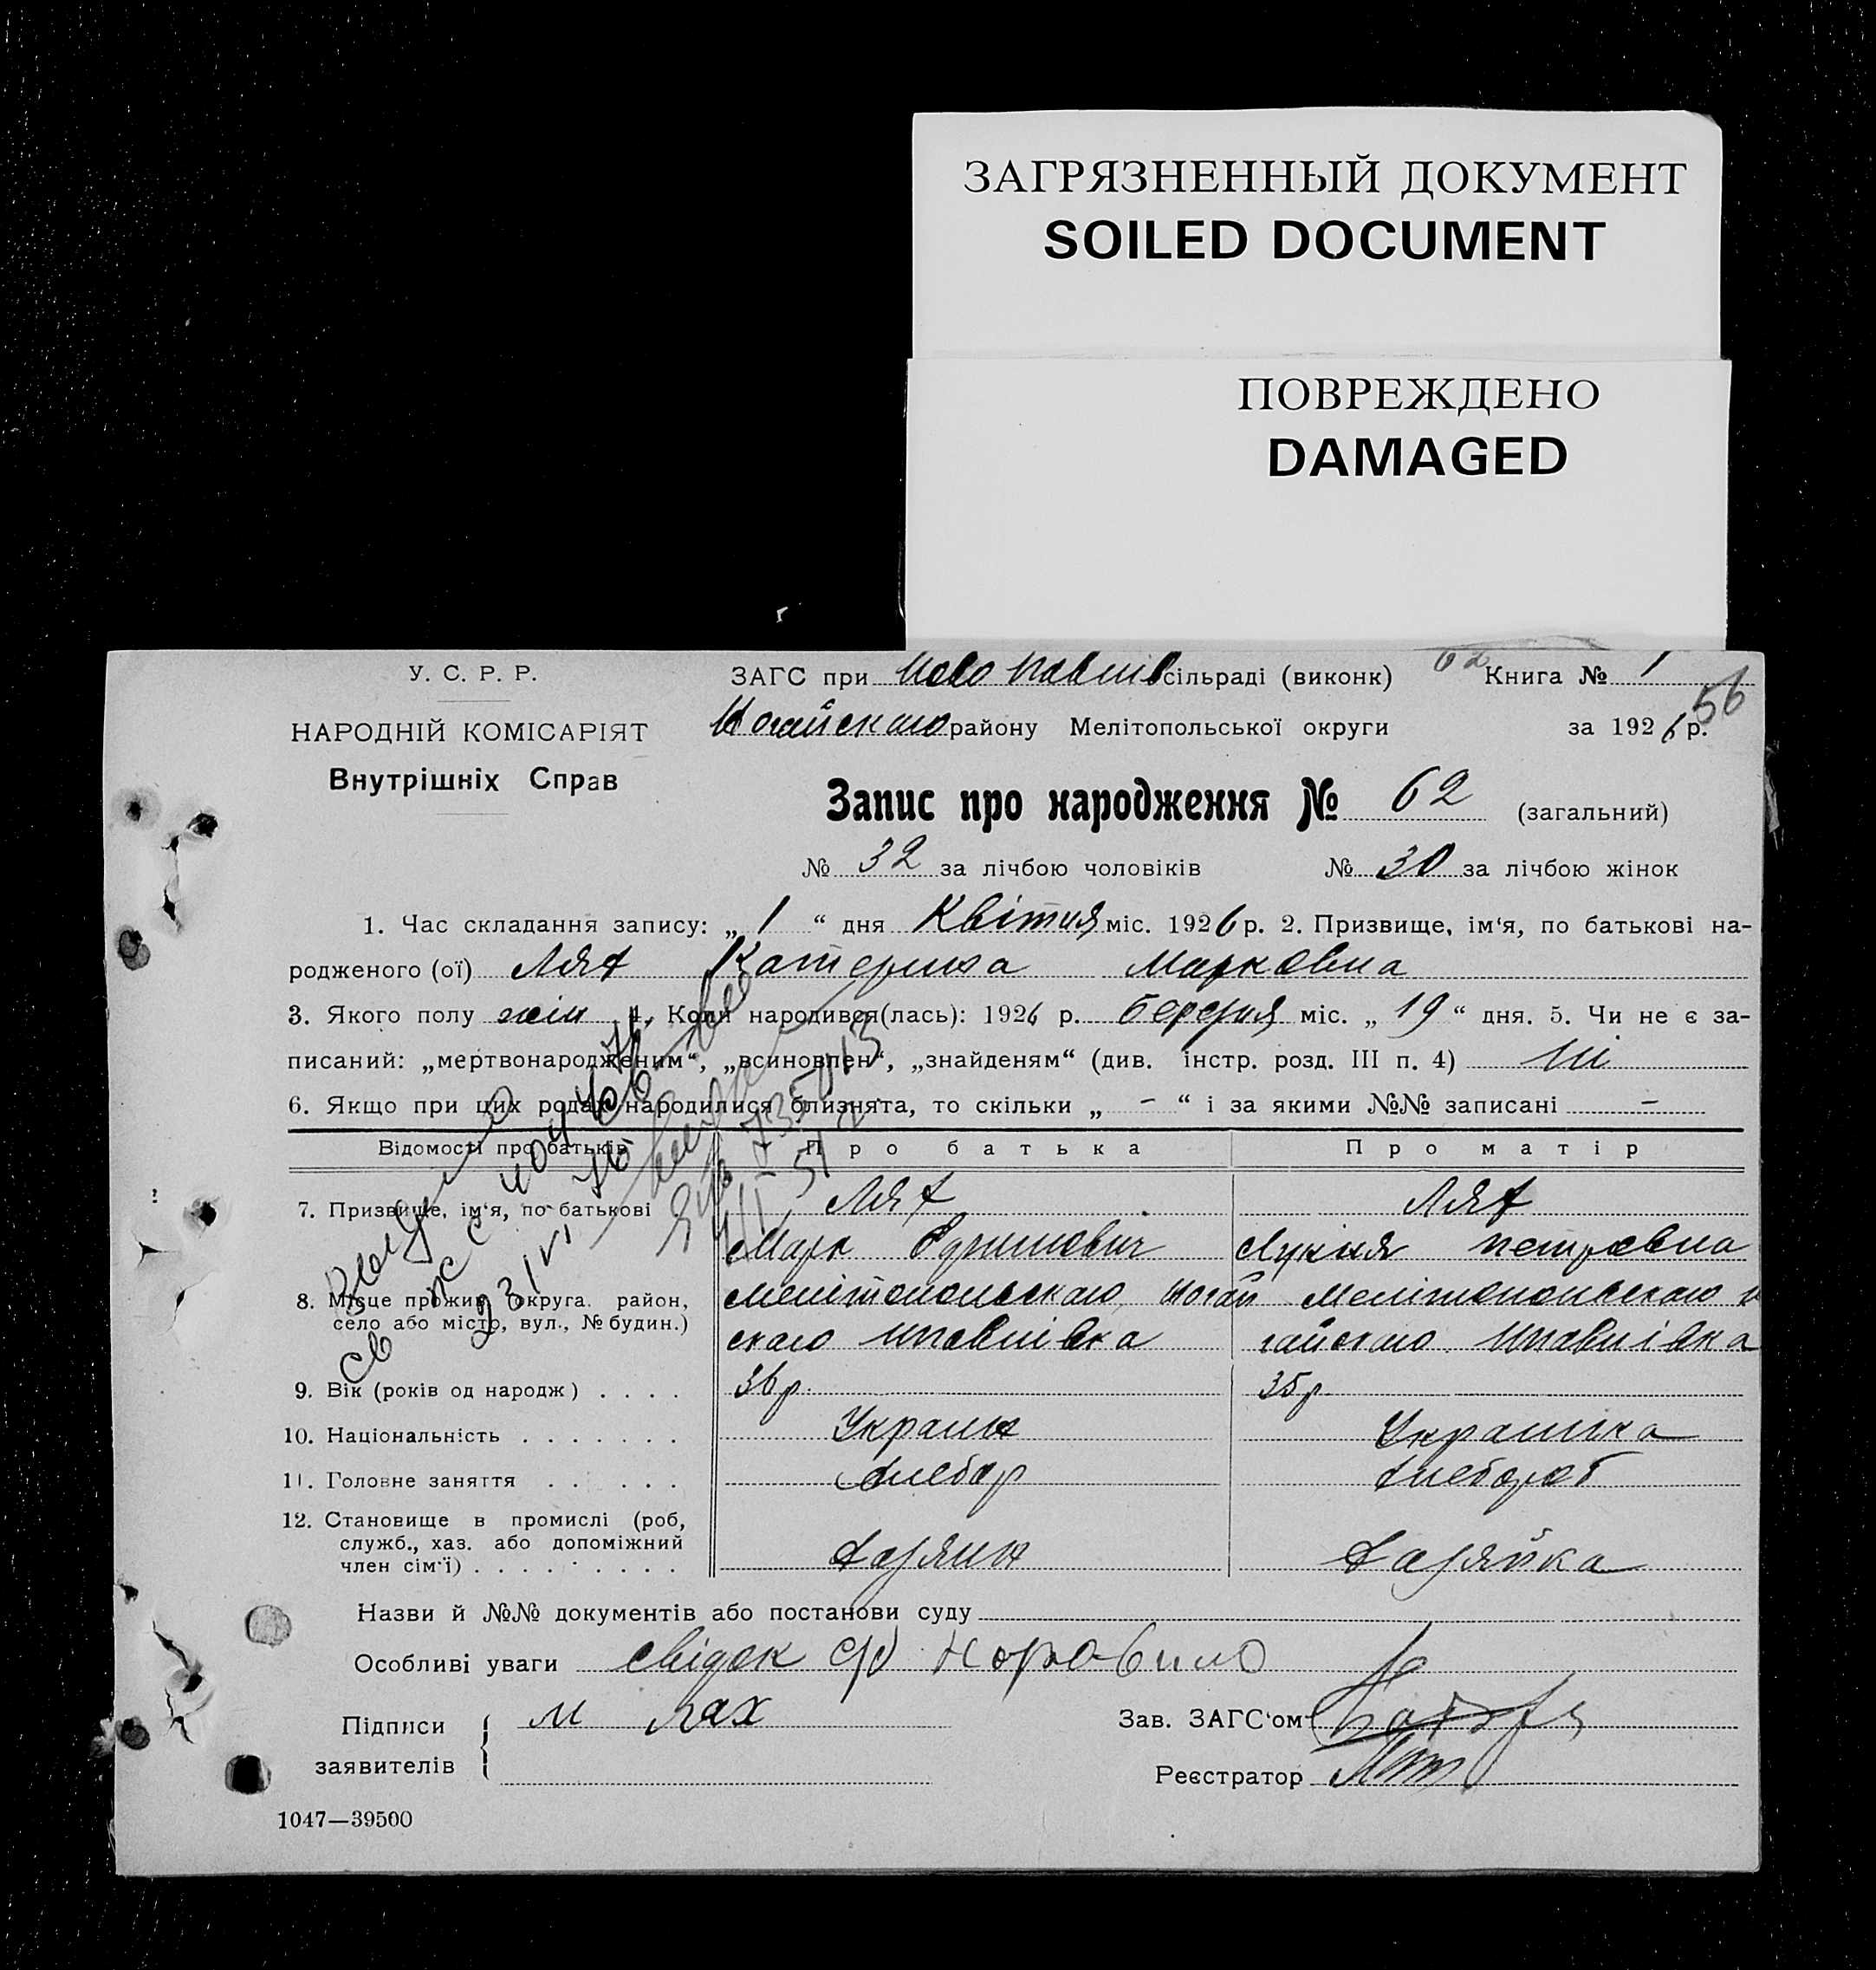 ЗАГРЯЗНЕННЫЙ ДОКУМЕНТ
SOILED DOCUMENT
ПОВРЕЖДЕНО
DAMAGED
У. С. Р. Р.
НАРОДНІЙ КОМІСАРІЯТ
Внутрішніх Справ
ЗАГС при Ново Павлів сільраді (виконк) 62 Книга № 1
56
Ногайського району Мелітопольської округи за 1926 р.
Запис про народження № 62 (загальний)
№ 32 за лічбою чоловіків № 30 за лічбою жінок
1. Час складання запису: „ 1 “ дня Квітня міс. 1926 р. 2. Призвище, ім‘я, по батькові на-
родженого (ої) Лях Катерина Марковна
3. Якого полу жін 4. Коли народився(лась): 1926 р. березня міс. „ 19 “ дня. 5. Чи не є за-
писаний: „мертвонародженим“, „всиновлен“, „знайденям“ (див. інстр. розд. III п. 4) Ні
6. Якщо при цих родах народилися близнята, то скільки „ - “ і за якими №№ записані -
Відомості про батьків Про батька Про матір
7. Призвище, ім‘я, по батькові Лях Лях
Марк Петровна
8. Місце прожив. округа. район, Мелітопольского, Ногай Мелітопольского
село або місто, вул., № будин.) ского Нпавлівка гайского Нпавлівка
9. Вік (років од народж) . . . . 36 р. 35 р
10. Національність . . . . . . . Украин Украинка
11. Головне заняття . . . . . . Хлебор Хлебороб
12. Становище в промислі (роб,
служб., хаз. або допоміжний
член сім‘ї) . . . . . . . . . Хазяин Хазяйка
Назви й №№ документів або постанови суду
Особливі уваги свідок с/р
Підписи заявителів М Лах
Зав. ЗАГС‘ом
Реєстратор
1047—39500